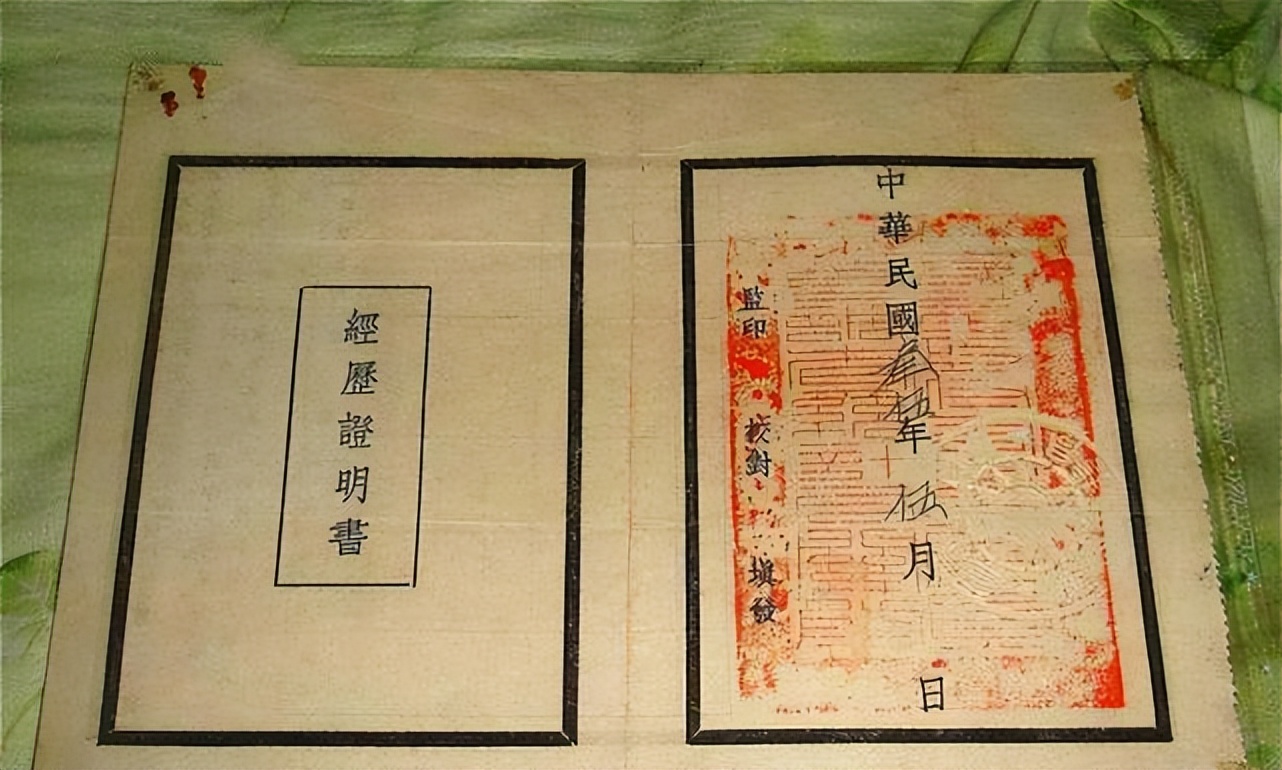 經歷證明書
中華民國叁伍年伍月日
監印
校對
填發